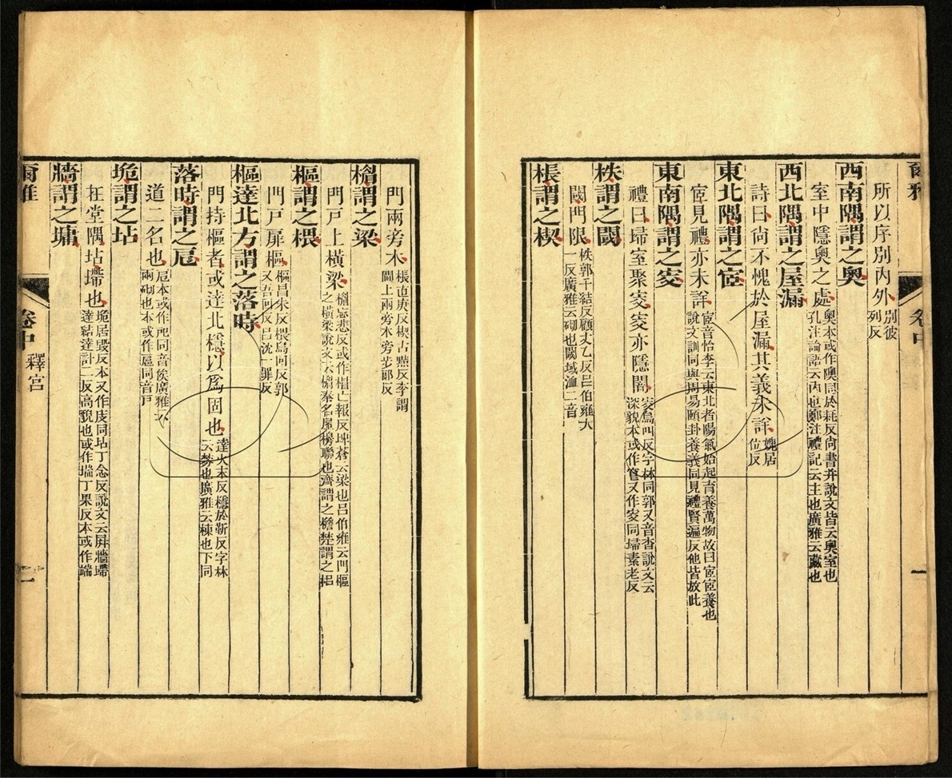 爾雅
卷中
一
所以序別內外別彼列反
西南隅謂之奧
室中隱奧之處奧本或作㘨同於耗反尚書并說文皆云奧室也
孔注論語云內也鄭注禮記云主也廣雅云藏也
西北隅謂之屋漏
詩曰尚不愧於屋漏其義未詳媿居位反
東北隅謂之宧
宧見禮亦未詳宧音怡李云東北者陽氣始起育養萬物故曰宧宧養也
說文訓同與周易頤卦養義同見禮賢遍反他皆放此
東南隅謂之窔
禮曰埽室聚窔窔亦隱闇窔烏叫反字林同郭又音杳說文云
深貌本或作窅又作㝔同埽素老反
柣謂之閾
閾門限柣郭千結反顧丈乙反呂伯雍大
一反廣雅云砌也閾域洫二音
棖謂之楔
門兩旁木棖直庚反楔古黠反李謂
閫上兩旁木旁步郎反
楣謂之梁
門戶上橫梁楣忘悲反或作㮰亡報反埤蒼云梁也呂伯雍云門樞
之橫梁說文云楣秦名屋㮰聯也齊謂之檐楚謂之梠
樞謂之椳
門戶扉樞樞昌朱反椳烏回反郭
又吾回反呂沈一罪反
樞達北方謂之落時
門持樞者或達北檼以為固也達火末反檼於靳反字林
云棼也廣雅云棟也下同
落時謂之戹
道二名也戹本或作戺同音俟廣雅云
砌也本或作扈同音戶
垝謂之坫
在堂隅坫㙞也垝居毀反本又作庋同坫丁念反說文云屏牆㙞
達結達計二反高貌也或作墆丁果反本或作端
牆謂之墉
爾雅
卷中
釋宮
一